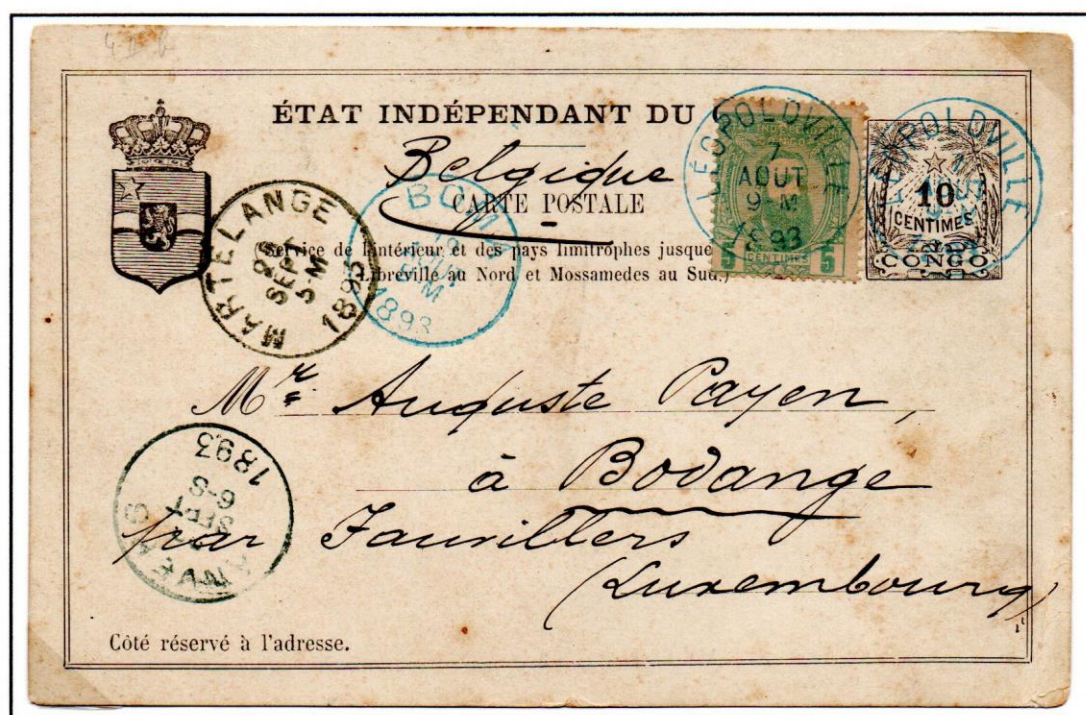 ÉTAT INDÉPENDANT DU
Belgique
CARTE POSTALE
Service de l'intérieur et des pays limitrophes jusque
Libreville au Nord et Mossamedes au Sud.)
LEOPOLDVILLE
7
AOUT
9-M
1893
INDÉP
5 CENTIMES 5
LEOPOLDVILLE
10
CENTIMES
CONGO
MARTELANGE
SEPT
5-M
1893
BOMA
M
1893
Mr Auguste Payen,
à Bodange
par Fauvillers
(Luxembourg)
ANVERS
SEPT
6-S
1893
Côté réservé à l'adresse.